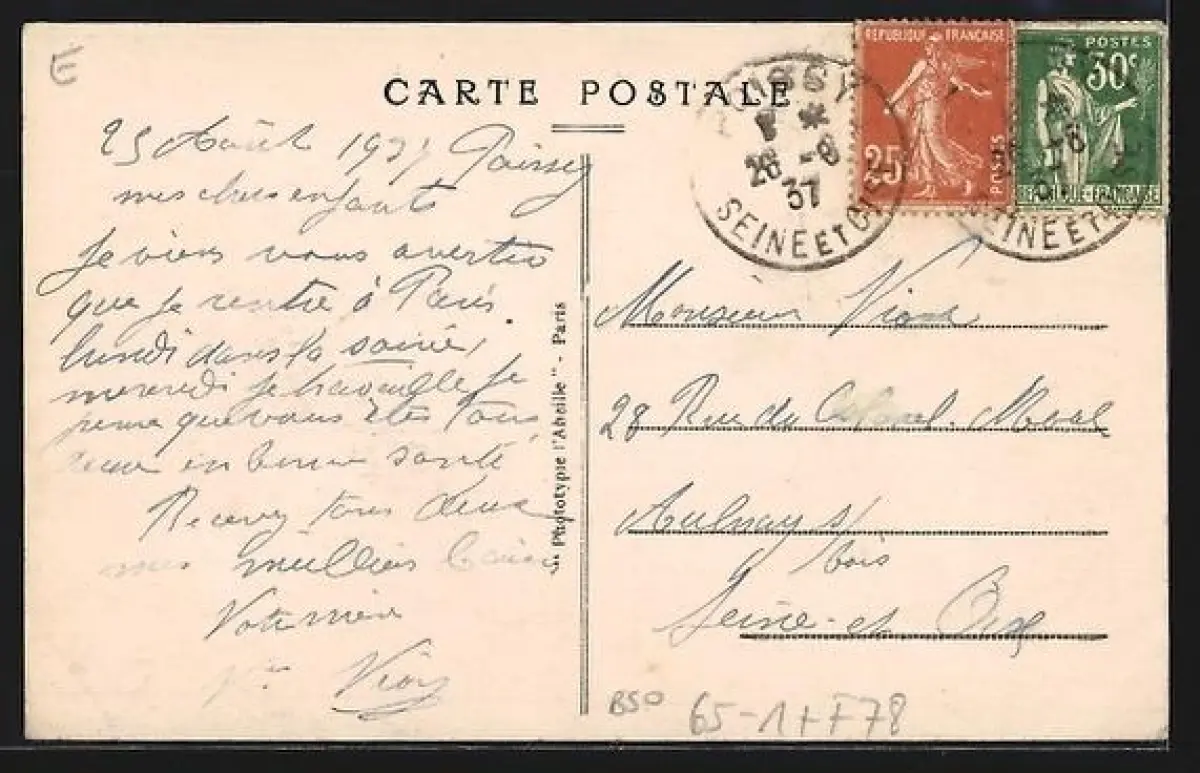 E
CARTE POSTALE
REPUBLIQUE FRANÇAISE
25c
POSTES
POSTES
30c
REPUBLIQUE-FRANÇAISE
POISSY
26 -8
37
SEINE ET OISE
-8
37
SEINE ET
25 Août 1937 Poissy
mes chers enfants
Je viens vous avertir
que je rentre à Paris
lundi dans la soirée,
mercredi je travaille je
pense que vous êtes tous
deux en bonne santé
Recevez tous deux
mes milliers baisers
Votre mère
Vve
"Phototypie l'Abeille" - Paris
Monsieur
28 Rue du Colonel. Moval
Aulnay s/
bois
Seine-et Oise
BSO
65-1+F78